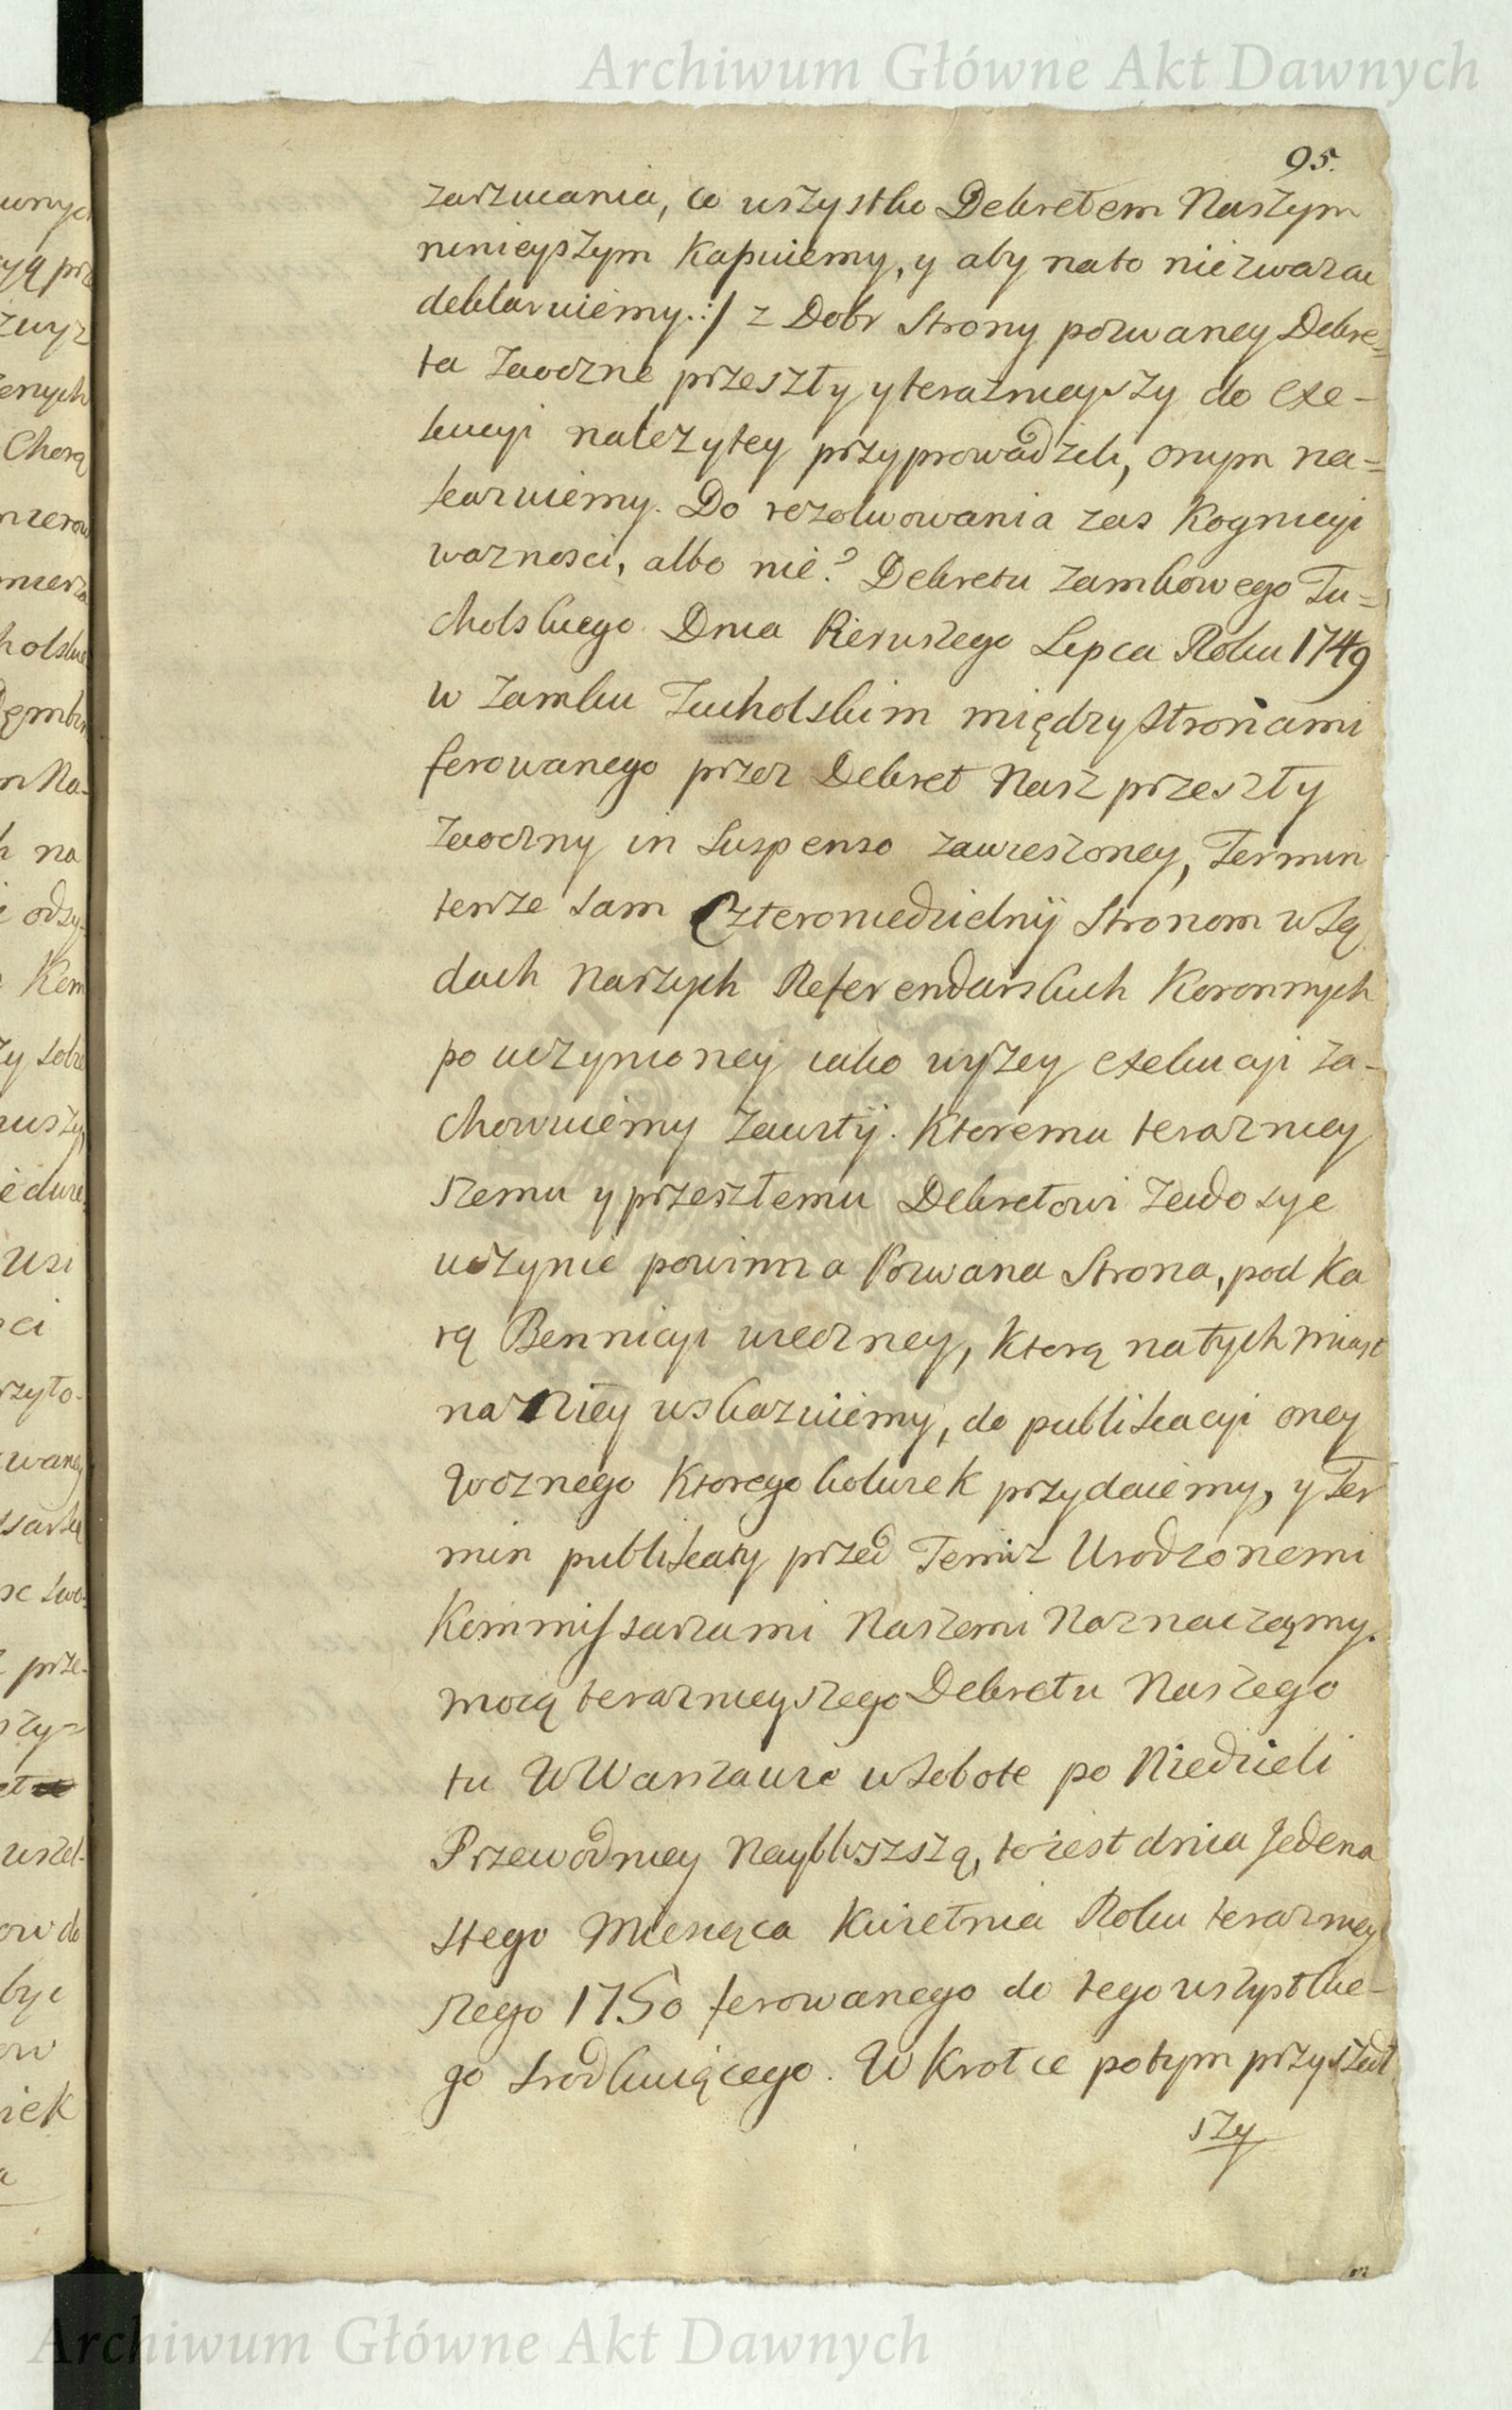 Archiwum Główne Akt Dawnych
95.
zarzucania, co wszystko Dekretem Naszym
ninieyszym kassuiemy, y aby nato niezwazac
deklaruiemy :/ z Dobr Strony pozwaney Dekre=
ta Zaoczne przeszły y teraznieyszy do exe-
kucyi nalezytey przyprowadzili, onym na=
kazuiemy. Do rezolwowania zas Kognicyi
waznosci, albo nie? Dekretu Zamkowego Tu=
cholskiego Dnia Pierwszego Lipca Roku 1749
w Zamku Tucholskim między Stronami
ferowanego przez Dekret Nasz przeszły
Zaoczny in Suspenso zawieszoney, Termin
tenze sam Czteroniedzielnÿ Stronom w Są
dach Naszych Referendarskich Koronnych
po uczynioney iako wyzey exekucyi za-
chowuiemy Zawitÿ. Ktoremu terazniey
szemu y przeszłemu Dekretowi Zadosyc
uczynic powinna Pozwana Strona, pod Ka
rą Bannicyi wieczney, Ktorą natychmiast
na Niey wskazuiemy, do publikacyi oney
Woznego Ktoregokolwiek przydaiemy, y Ter
min publikaty przed Temiz Urodzonemi
Kommissarzami Naszemi Naznaczamy.
mocą teraznieyszego Dekretu Naszego
tu W Warszawie w Sobote po Niedzieli
Przewodniey Naybliszszą, to iest dnia Jedena
stego Miesiąca Kwietnia Roku terazniey
szego 1750 ferowanego do tego wszystkie-
go srodkuiącego. W Krotce potym przyszedł
szy
Archiwum Główne Akt Dawnych